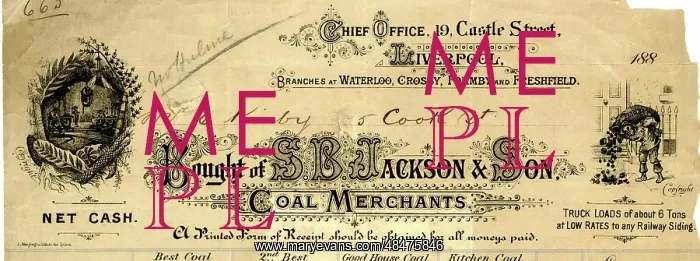 665
Chief Office, 19, Castle Street,
Liverpool,
188
Mr Hulme
Branches at Waterloo, Crosby, Formby and Freshfield.
ME
PL
ME
PL
Kirby 5 Cook St
Bought of S. B. Jackson & Son.
Coal Merchants.
Copyright
Copyright
NET CASH.
TRUCK LOADS of about 6 Tons
at LOW RATES to any Railway Siding.
A Printed Form of Receipt should be obtained for all moneys paid.
www.maryevans.com/48475846
Best Coal 2nd Best Good House Coal Kitchen Coal